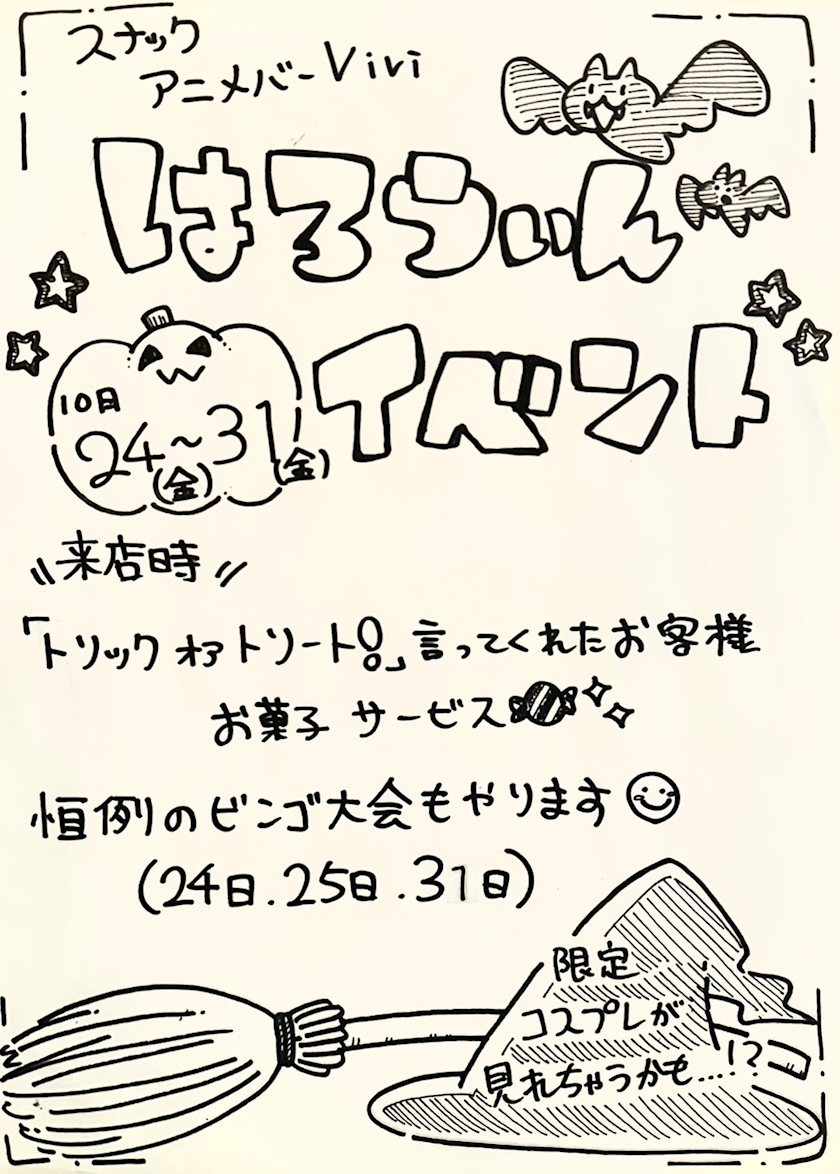 スナック
アニメバーViVi
はろうぃん
イベント
10日
24~31
(金)
(金)
来店時
「トリックオアトリート!!」言ってくれたお客様
お菓子サービス
恒例のビンゴ大会もやります
(24日.25日.31日)
限定
コスプレが
見れちゃうかも...!?